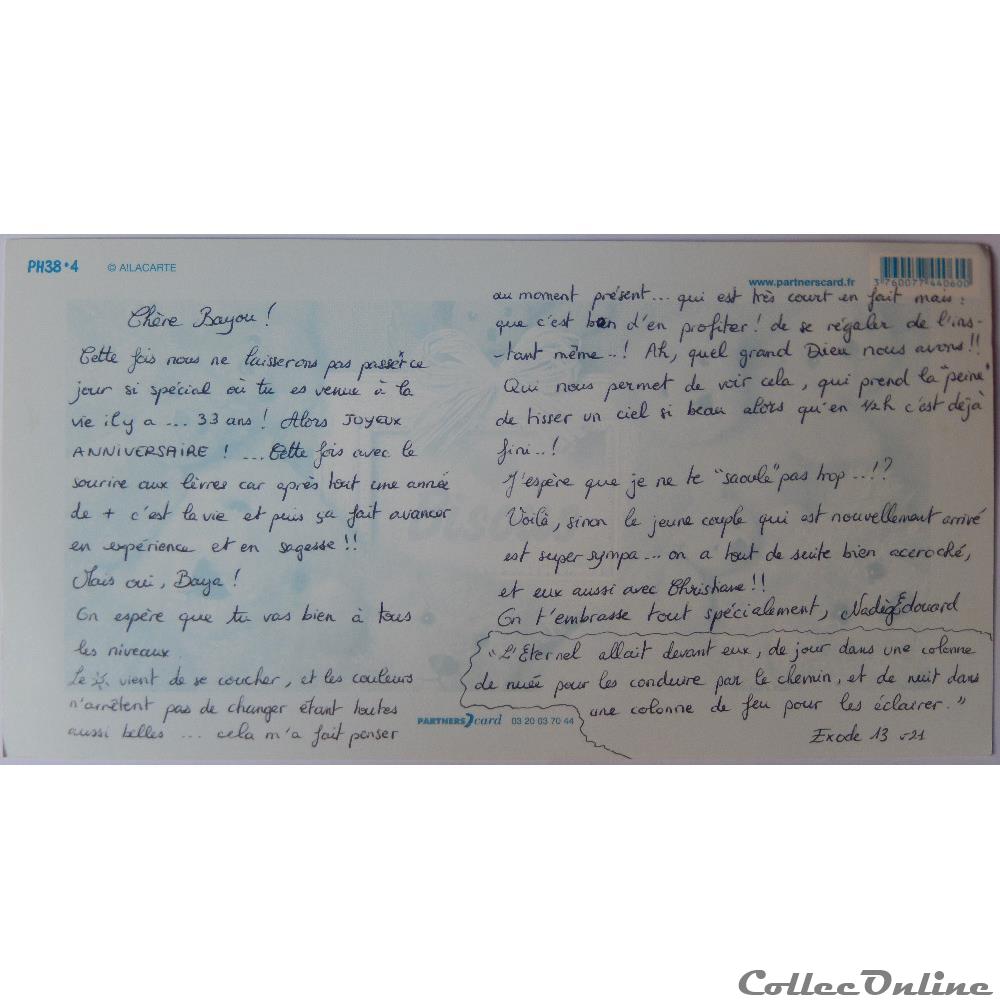 PH38•4 © AILACARTE
www.partnerscard.fr
3 760077 440600
Chère Bayou !
Cette fois nous ne laisserons pas passer ce
jour si spécial où tu es venue à la
vie il y a ... 33 ans ! Alors JOYEUX
ANNIVERSAIRE ! ... Cette fois avec le
sourire aux lèvres car après tout une année
de + c'est la vie et puis ça fait avancer
en expérience et en sagesse !!
Mais oui, Baya !
On espère que tu vas bien à tous
les niveaux.
Le vient de se coucher, et les couleurs
n'arrêtent pas de changer étant toutes
aussi belles ... cela m'a fait penser
au moment présent ... qui est très court en fait mais :
que c'est bon d'en profiter ! de se régaler de l'ins-
-tant même ..! Ah, quel grand Dieu nous avons !!
Qui nous permet de voir cela, qui prend la "peine"
de tisser un ciel si beau alors qu'en 1/2 h c'est déjà
fini ..!
J'espère que je ne te "saoule" pas trop ...!?
Voilà, sinon le jeune couple qui est nouvellement arrivé
est super sympa ... on a tout de suite bien accroché,
et eux aussi avec Christiane !!
On t'embrasse tout spécialement, Nadège Edouard
"L'Eternel allait devant eux, de jour dans une colonne
de nuée pour les conduire par le chemin, et de nuit dans
une colonne de feu pour les éclairer."
Exode 13 v21
PARTNERS card 03 20 03 70 44
CollecOnline